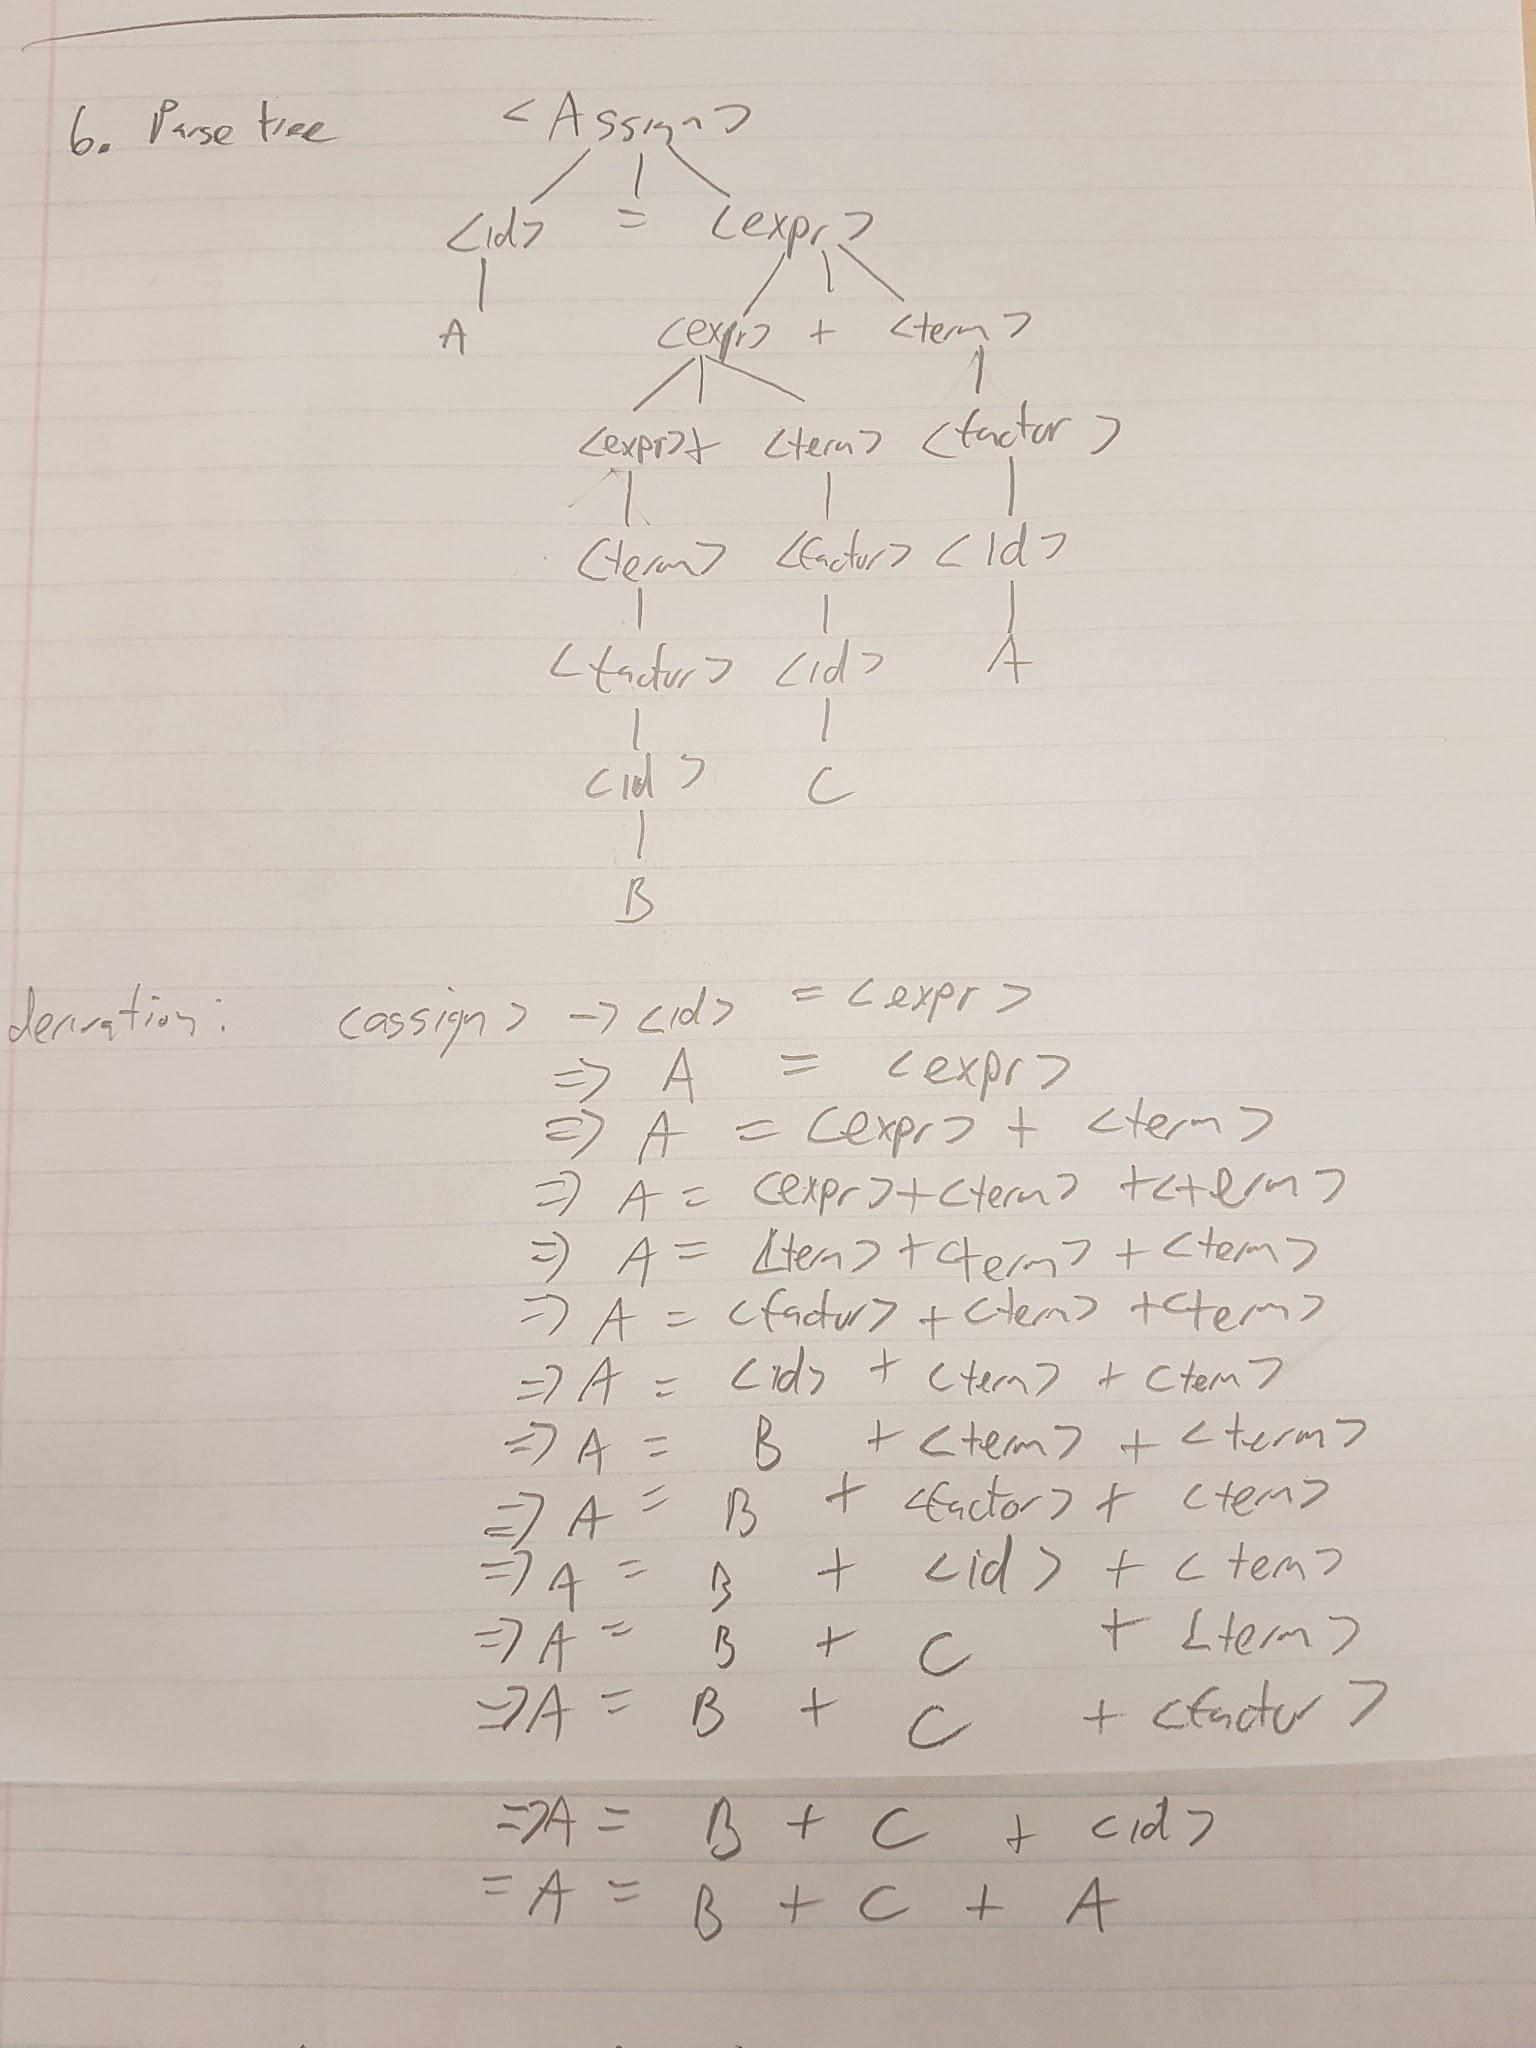 6. Parse tree <Assign>
<id> = <expr>
A <expr> + <term>
<expr>+ <term> <factor>
<term> <factor> <id>
<factor> <id> A
<id> C
B
derivation: <assign> -> <id> = <expr>
=> A = <expr>
=> A = <expr> + <term>
=> A = <expr>+<term> +<term>
=> A = <term> + <term> + <term>
=> A = <factor> + <term> + <term>
=> A = <id> + <term> + <term>
=> A = B + <term> + <term>
=> A = B + <factor> + <term>
=> A = B + <id> + <term>
=> A = B + C + <term>
=> A = B + C + <factor>
=> A = B + C + <id>
= A = B + C + A